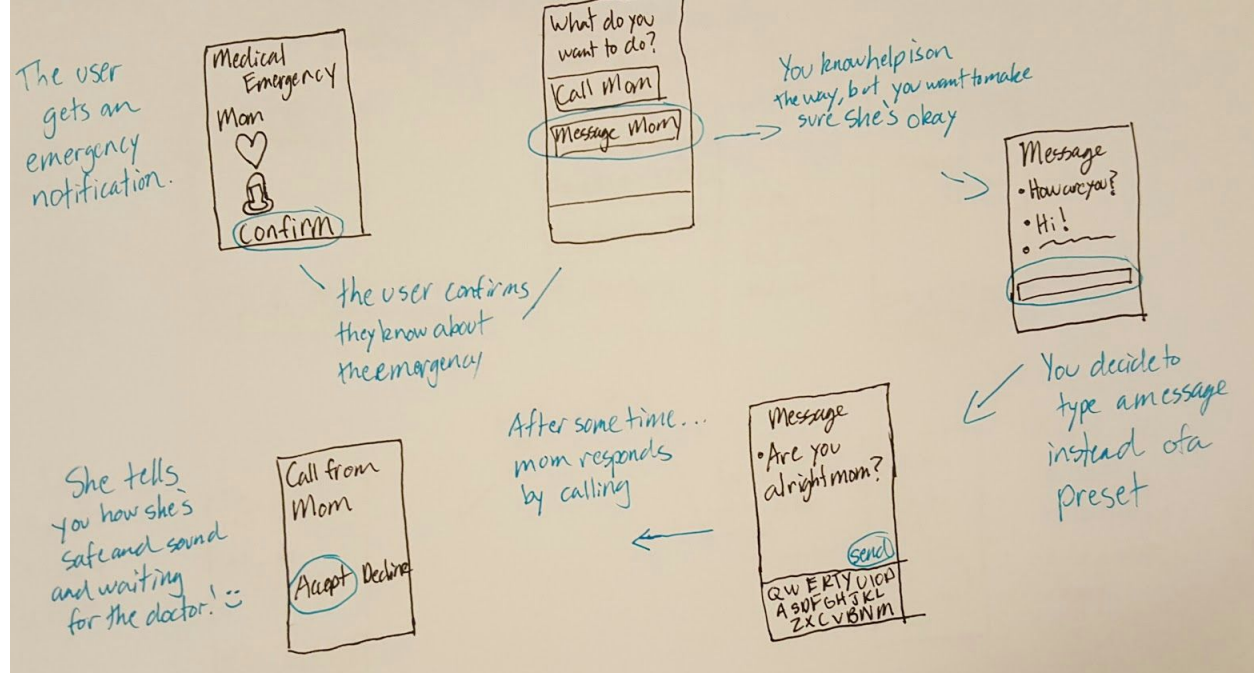 The user
gets an
emergency
notification.
Medical
Emergency
Mom
Confirm
the user confirms
they know about
the emergency
What do you
want to do?
Call Mom
Message Mom
You know help is on
the way, but you want to make
sure she's okay
Message
• How are you?
• Hi!
You decide to
type a message
instead of a
preset
Message
• Are you
alright mom?
send
QWERTYUIOP
ASDFGHJKL
ZXCVBNM
After some time...
mom responds
by calling
Call from
Mom
Accept Decline
She tells
you how she's
safe and sound
and waiting
for the doctor! :)